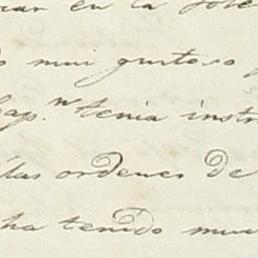 en la
mui gustoso
Cap.n tenia instr
las ordenes de
ha tenido mu